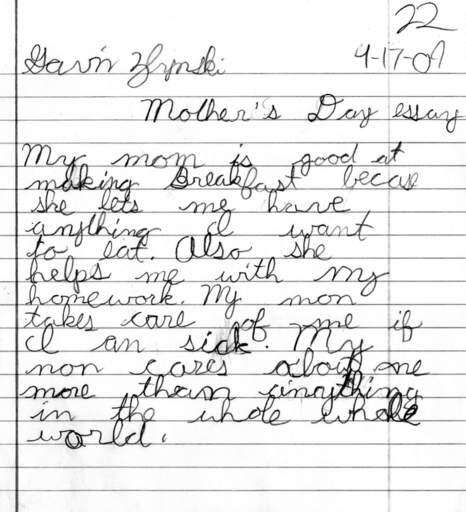 22
Gavin
4-17-07
Mother's Day essay
My mom is good at
making Breakfast becase
she lets me have
anything I want
to eat. Also she
helps me with my
homework. My mon
takes care of me if
I an sick. My
mon cares about me
more than anything
in the whole whole
world.